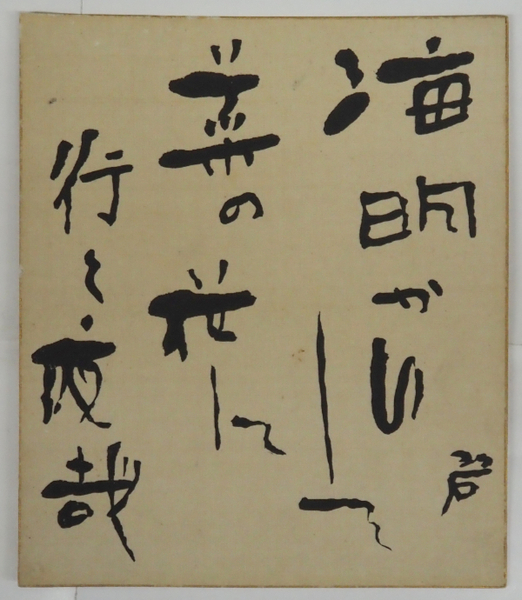 海明かりして
菜の花に
行く夜哉